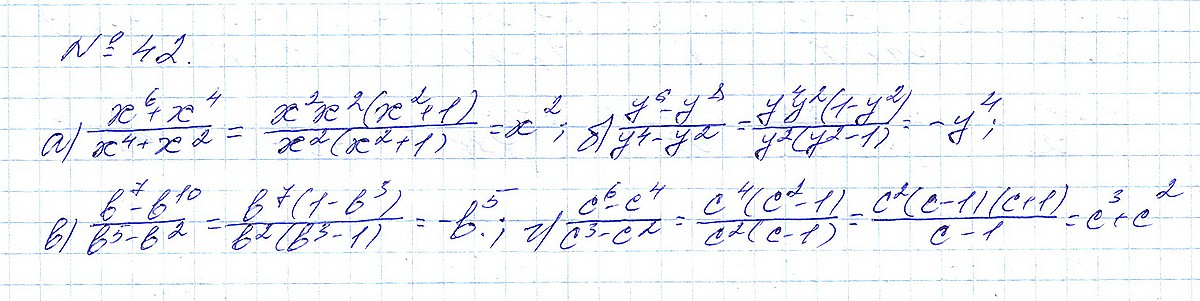 № 42.
а) (x⁶+x⁴)/(x⁴+x²) = (x²x²(x²+1))/(x²(x²+1)) = x²; б) (y⁶-y⁸)/(y⁴-y²) = (y⁴y²(1-y²))/(y²(y²-1)) = -y⁴;
в) (b⁷-b¹⁰)/(b⁵-b²) = (b⁷(1-b³))/(b²(b³-1)) = -b⁵; г) (c⁶-c⁴)/(c³-c²) = (c⁴(c²-1))/(c²(c-1)) = (c²(c-1)(c+1))/(c-1) = c³+c²